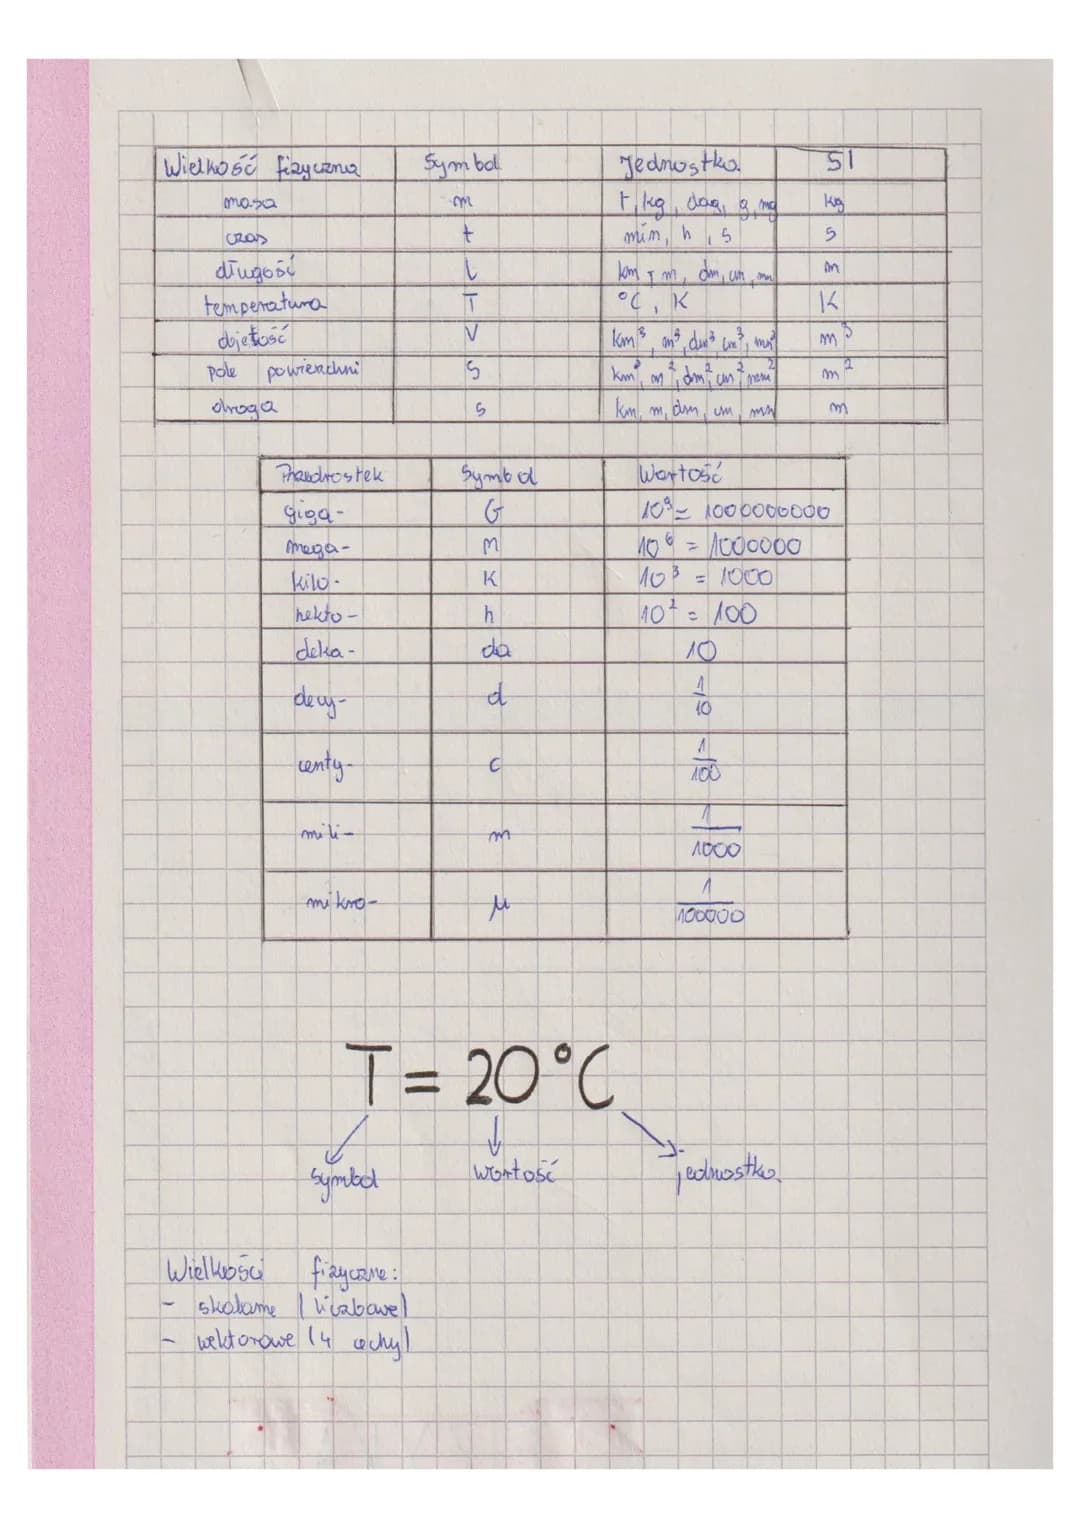 Wielkość fizyczna Symbol Jednostka SI
masa m t, kg, dag, g, mg kg
czas t min, h, s s
długość l km, m, dm, cm, mm m
temperatura T °C, K K
objętość V km³, m³, dm³, cm³, mm³ m³
pole powierzchni S km², m², dm², cm², mm² m²
droga s km, m, dm, cm, mm m
Przedrostek Symbol Wartość
giga- G 10⁹ = 1000000000
mega- M 10⁶ = 1000000
kilo- K 10³ = 1000
hekto- h 10² = 100
deka- da 10
decy- d 1/10
centy- c 1/100
mili- m 1/1000
mikro- μ 1/100000
T = 20°C
symbol wartość jednostka
Wielkości fizyczne:
- skalarne (liczbowe)
- wektorowe (4 cechy)